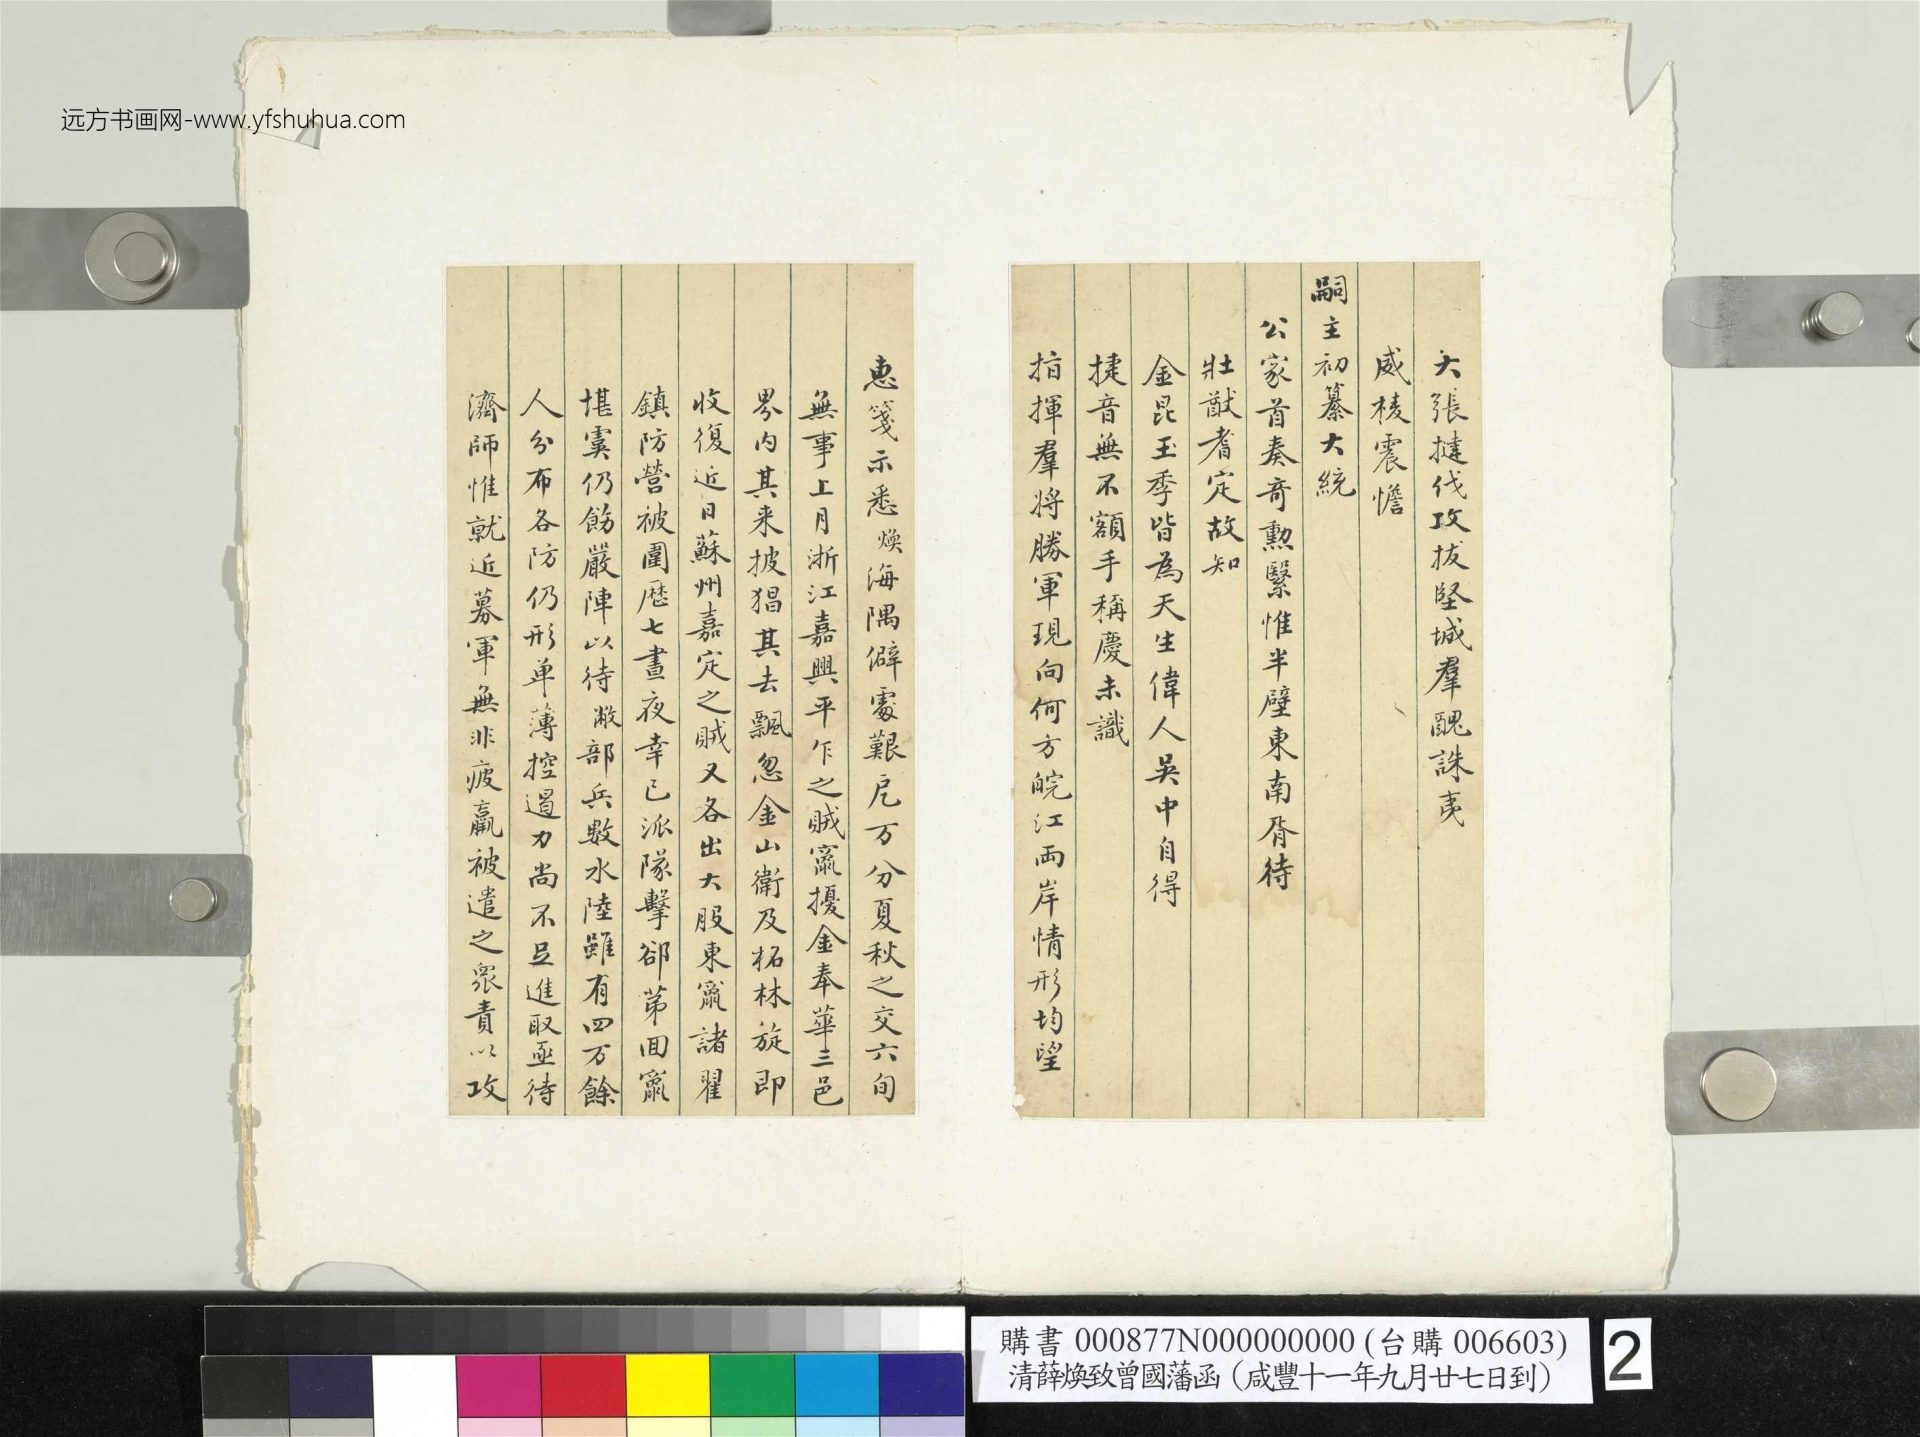 远方书画网-www.yfshuhua.com
大張撻伐攻拔堅城羣醜誅夷
威棱震懾
嗣主初纂大統
公家首奏奇勳繄惟半壁東南胥待
壯猷耆定故知
金昆玉季皆為天生偉人吳中自得
捷音無不額手稱慶未識
指揮羣將勝軍現向何方皖江兩岸情形均望
惠箋示悉煥海隅僻處艱危万分夏秋之交六旬
無事上月浙江嘉興平乍之賊竄擾金奉華三邑
界内其来披猖其去飄忽金山衛及柘林旋即
收復近日蘇州嘉定之賊又各出大股東竄諸翟
鎮防營被圍歷七晝夜幸已派隊擊卻苐回竄
堪虞仍飭嚴陣以待敝部兵數水陸雖有四万餘
人分布各防仍形单薄控遏力尚不足進取亟待
濟師惟就近募軍無非疲羸被遣之衆責以攻
購書 000877N000000000 (台購 006603)
清薛煥致曾國藩函（咸豐十一年九月廿七日到）
2